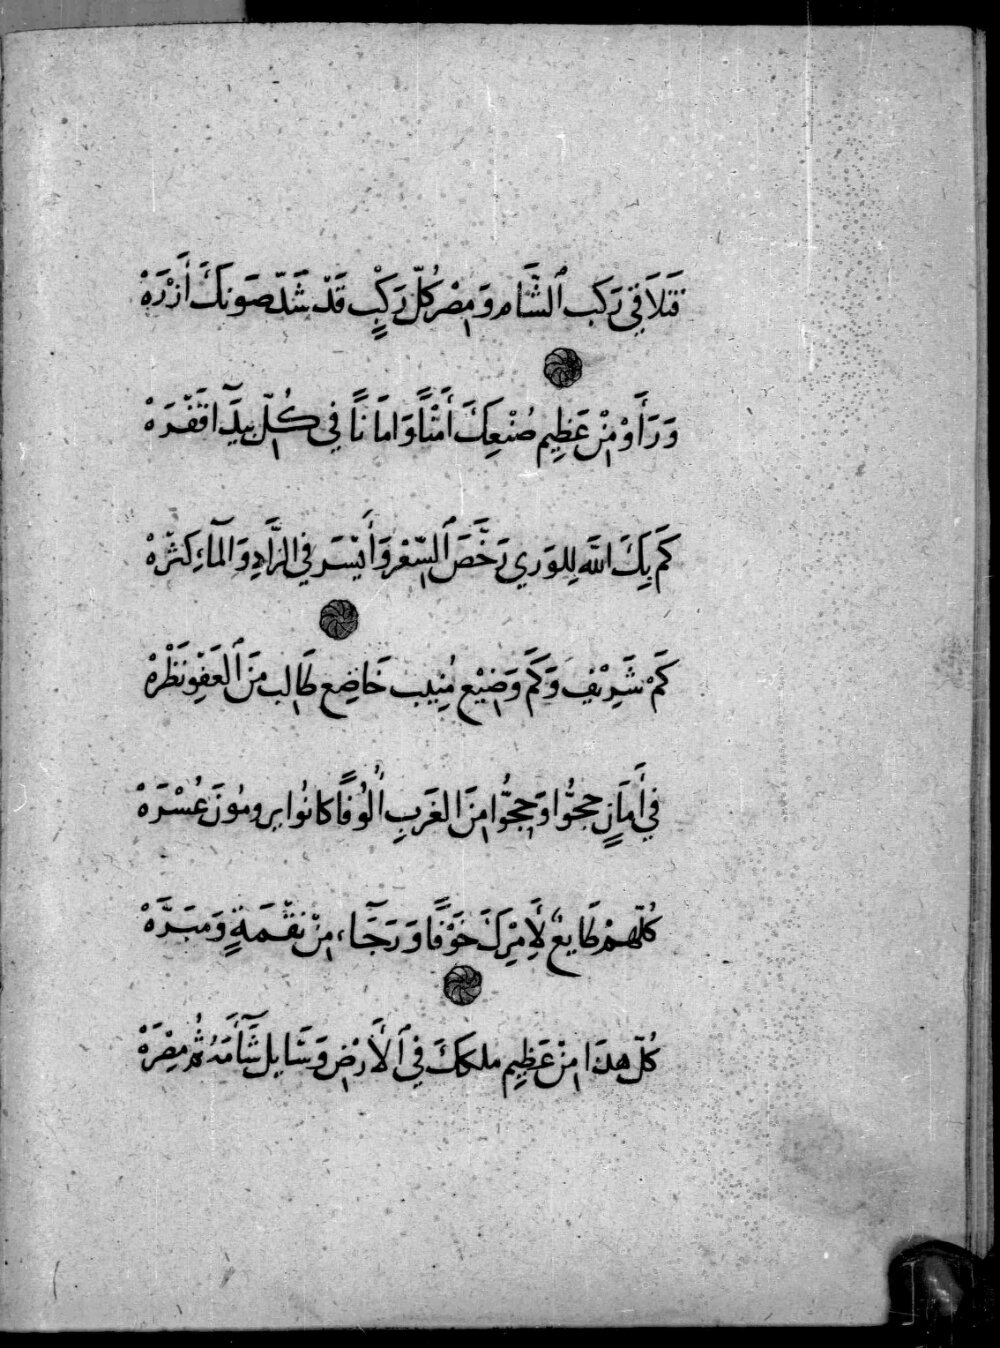 فَتَلَاقَى رَكب ٱلشَّام وَمِصْر كُلّ رَكْبٍ قَدْ شَدّ صَونكَ أَزْرَهْ
وَرَأَوْ مِنْ عَظِيم صُنْعِكَ أَمْنًا وَامَانًا فِي كُلّ بيدَآ اقفْرَهْ
كَم بِكَ اللّه لِلوَرِي رَخَّصَ ٱلسِّعْر وَأَيْسَر فِي الزَّادِ وَالمَآءِ كثْرَهْ
كَمْ شَرِيْفٍ وَكَم وَضِيْع مُنِيب خَاضِع طَالب مِنَ ٱلعَفْوِ نَظْرَهْ
فِي أَمَانٍ حججُّوا وَحججُّوا مِنَ الغَربِ أُلُوفًا كانُوا يرومُونَ عُسْرَهْ
كُلّهمْ طَايعٌ لأَمِرْكَ خَوْفًا وَرَجَآء، مِنْ نقْمَةٍ وَمَبَرَّهْ
كُلّ هذَا مِنْ عَظِيم ملككَ فِي ٱلأَرْضِ وَسَايل شَآمَهُ ثُم مِصْرَهْ